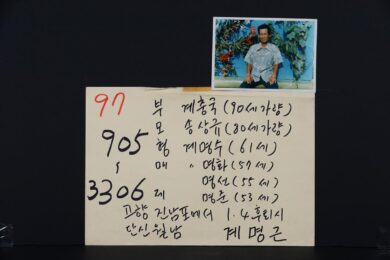 97 부 계흥국 (90세가량)
모 송상규 (80세가량)
905 형 계명수 (61세)
매 〃 명화 (57세)
3306 명선 (55세)
제 명운 (53세)
고향 진남포에서 1.4후퇴시
단신월남 계명근